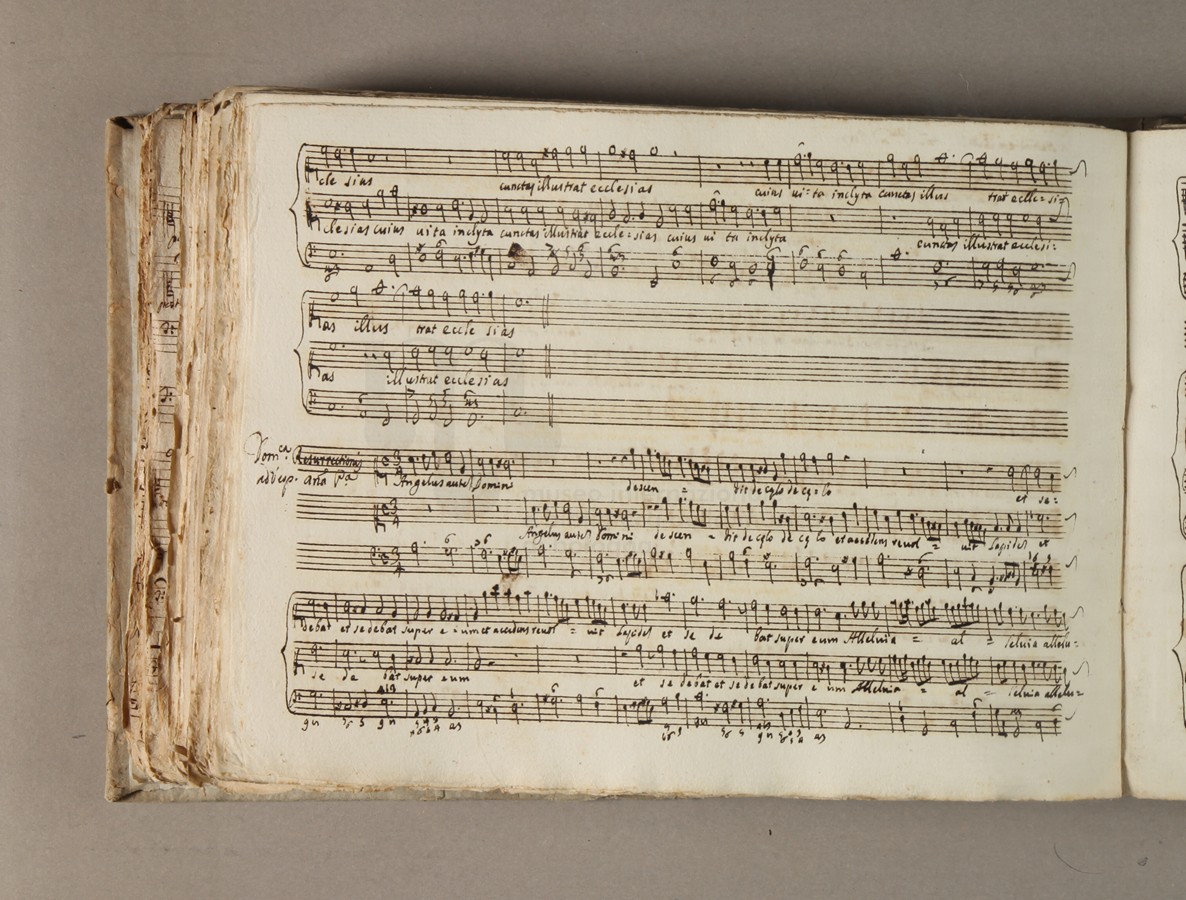 cle sias cunctas illustrat ecclesias cuius ui-ta inclyta cunctas illus trat eccle-si-
clesias cuius uita inclyta cunctas illustrat eccle-sias cuius ui ta inclyta cunctas illustrat ecclesi-
as illus trat eccle sias
as illustrat ecclesias
Dom.ca Resurrectionis
ad Vesp. Ana Pa
Angelus autem Domini descen = dit de cęlo de cę-lo et se-
Angelus autem Domini descen = dit de cęlo de cę lo et accedens reuol = uit lapidem et
debat et sedebat super e-um et accedens reuol = uit lapidem et se de bat super eum Alleluia = al = leluia allelu-
se de bat super eum et se debat et sedebat super e um Alleluia = al = leluia allelu-